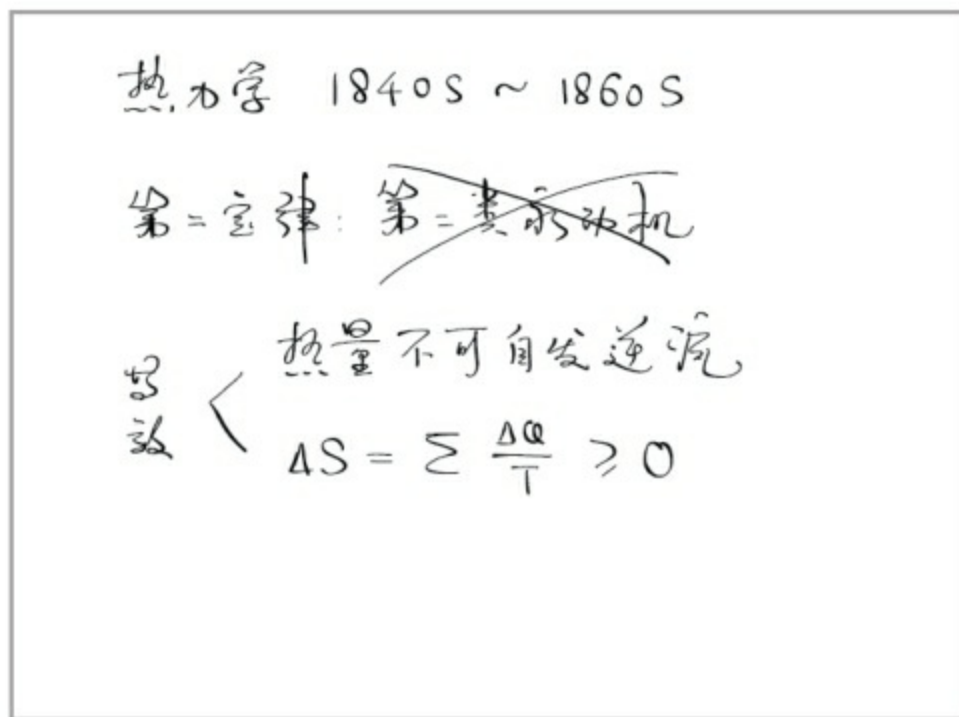 热力学 1840S ~ 1860S
第二定律: 第二类永动机
等效
热量不可自发逆流
ΔS = Σ ΔQ/T ≥ 0